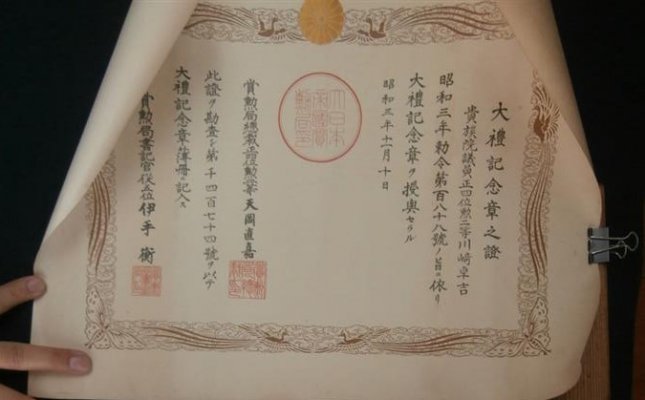 大禮記念章之證
貴族院議員正四位勲二等川崎卓吉
昭和三年勅令第百八十八號ノ旨ニ依リ
大禮記念章ヲ授與セラル
昭和三年十一月十日
大日本
賞勲局總裁正三位勲一等天岡直嘉
此證ヲ勘査シ第千四百七十四號ヲ以テ
大禮記念章簿冊ニ記入ス
賞勲局書記官從五位伊手衡